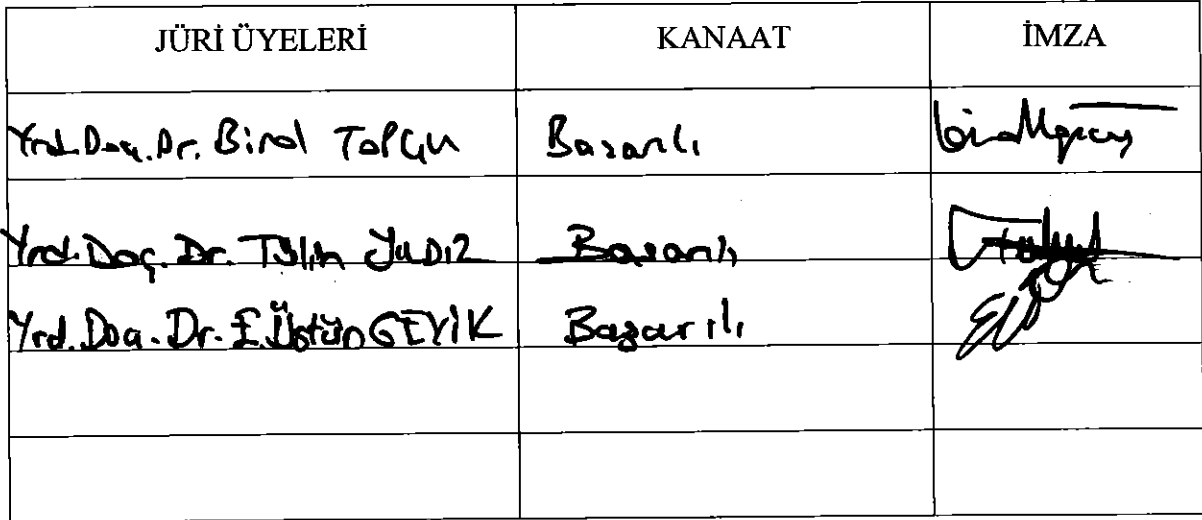 JÜRİ ÜYELERİ KANAAT İMZA
Yrd. Doç. Dr. Birol TOPÇU Başarılı
Yrd. Doç. Dr. Tülin Başarılı
Yrd. Doç. Dr. E. Üstün GEYİK Başarılı